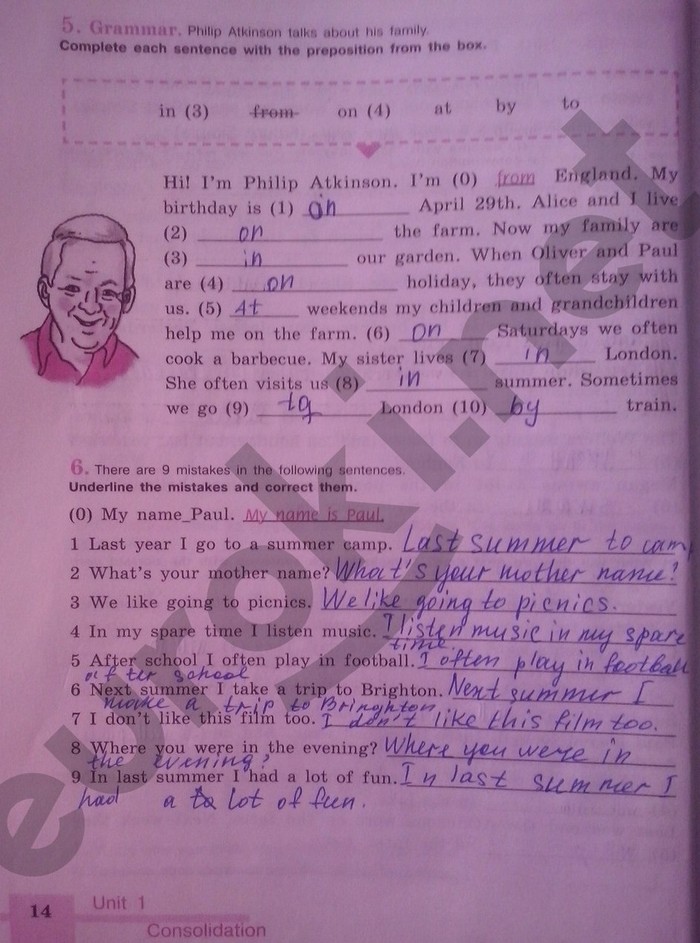 5. Grammar. Philip Atkinson talks about his family.
Complete each sentence with the preposition from the box.
in (3) from on (4) at by to
Hi! I'm Philip Atkinson. I'm (0) from England. My
birthday is (1) on April 29th. Alice and I live
(2) on the farm. Now my family are
(3) in our garden. When Oliver and Paul
are (4) on holiday, they often stay with
us. (5) At weekends my children and grandchildren
help me on the farm. (6) on Saturdays we often
cook a barbecue. My sister lives (7) in London.
She often visits us (8) in summer. Sometimes
we go (9) to London (10) by train.
6. There are 9 mistakes in the following sentences.
Underline the mistakes and correct them.
(0) My name_Paul. My name is Paul.
1 Last year I go to a summer camp. Last summer to camp
2 What's your mother name? What's your mother name?
3 We like going to picnics. We like going to picnics.
4 In my spare time I listen music. I listen music in my spare
time
5 After school I often play in football. I often play in football
after school
6 Next summer I take a trip to Brighton. Next summer I
make a trip to Bringhton
7 I don't like this film too. I don't like this film too.
8 Where you were in the evening? Where you were in
the evening?
9 In last summer I had a lot of fun. In last summer I
had a to lot of fun.
14
Unit 1
Consolidation
euroki.net